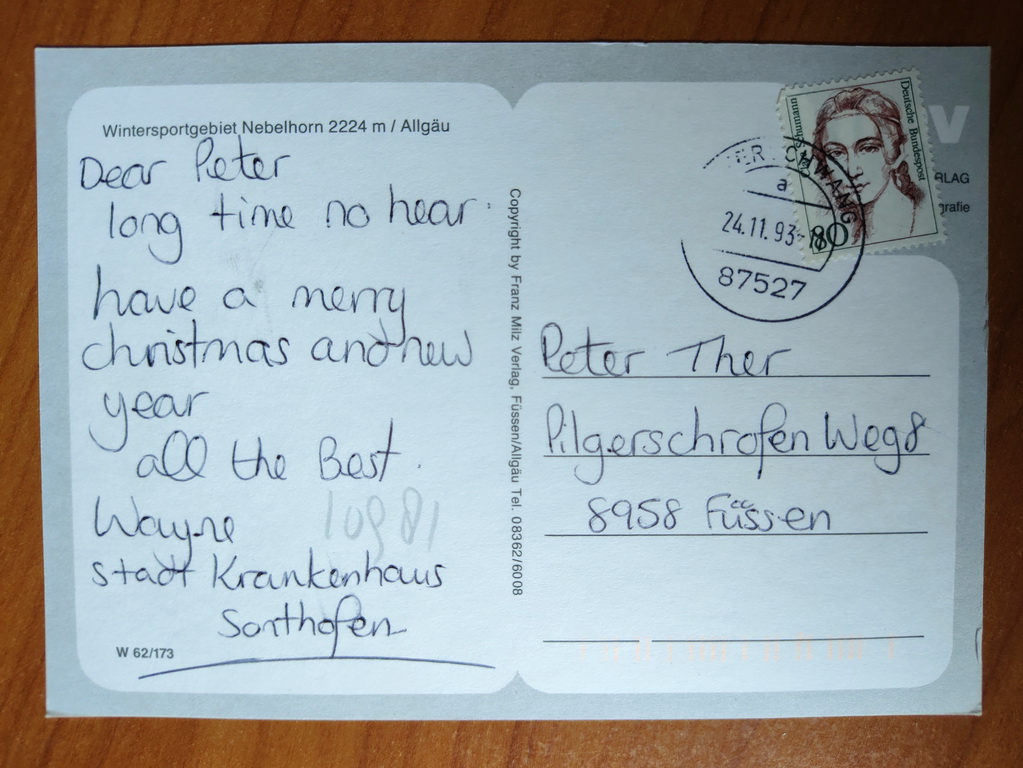 Wintersportgebiet Nebelhorn 2224 m / Allgäu
Dear Peter
long time no hear.
have a merry
christmas and new
year
all the Best.
Wayne
stadt Krankenhaus
Sonthofen
W 62/173
10981
Copyright by Franz Milz Verlag, Füssen/Allgäu Tel. 08362/6008
Deutsche Bundespost
Schumann
80
a
24.11.93
87527
RLAG
grafie
Peter Ther
Pilgerschrofen Weg 8
8958 Füssen